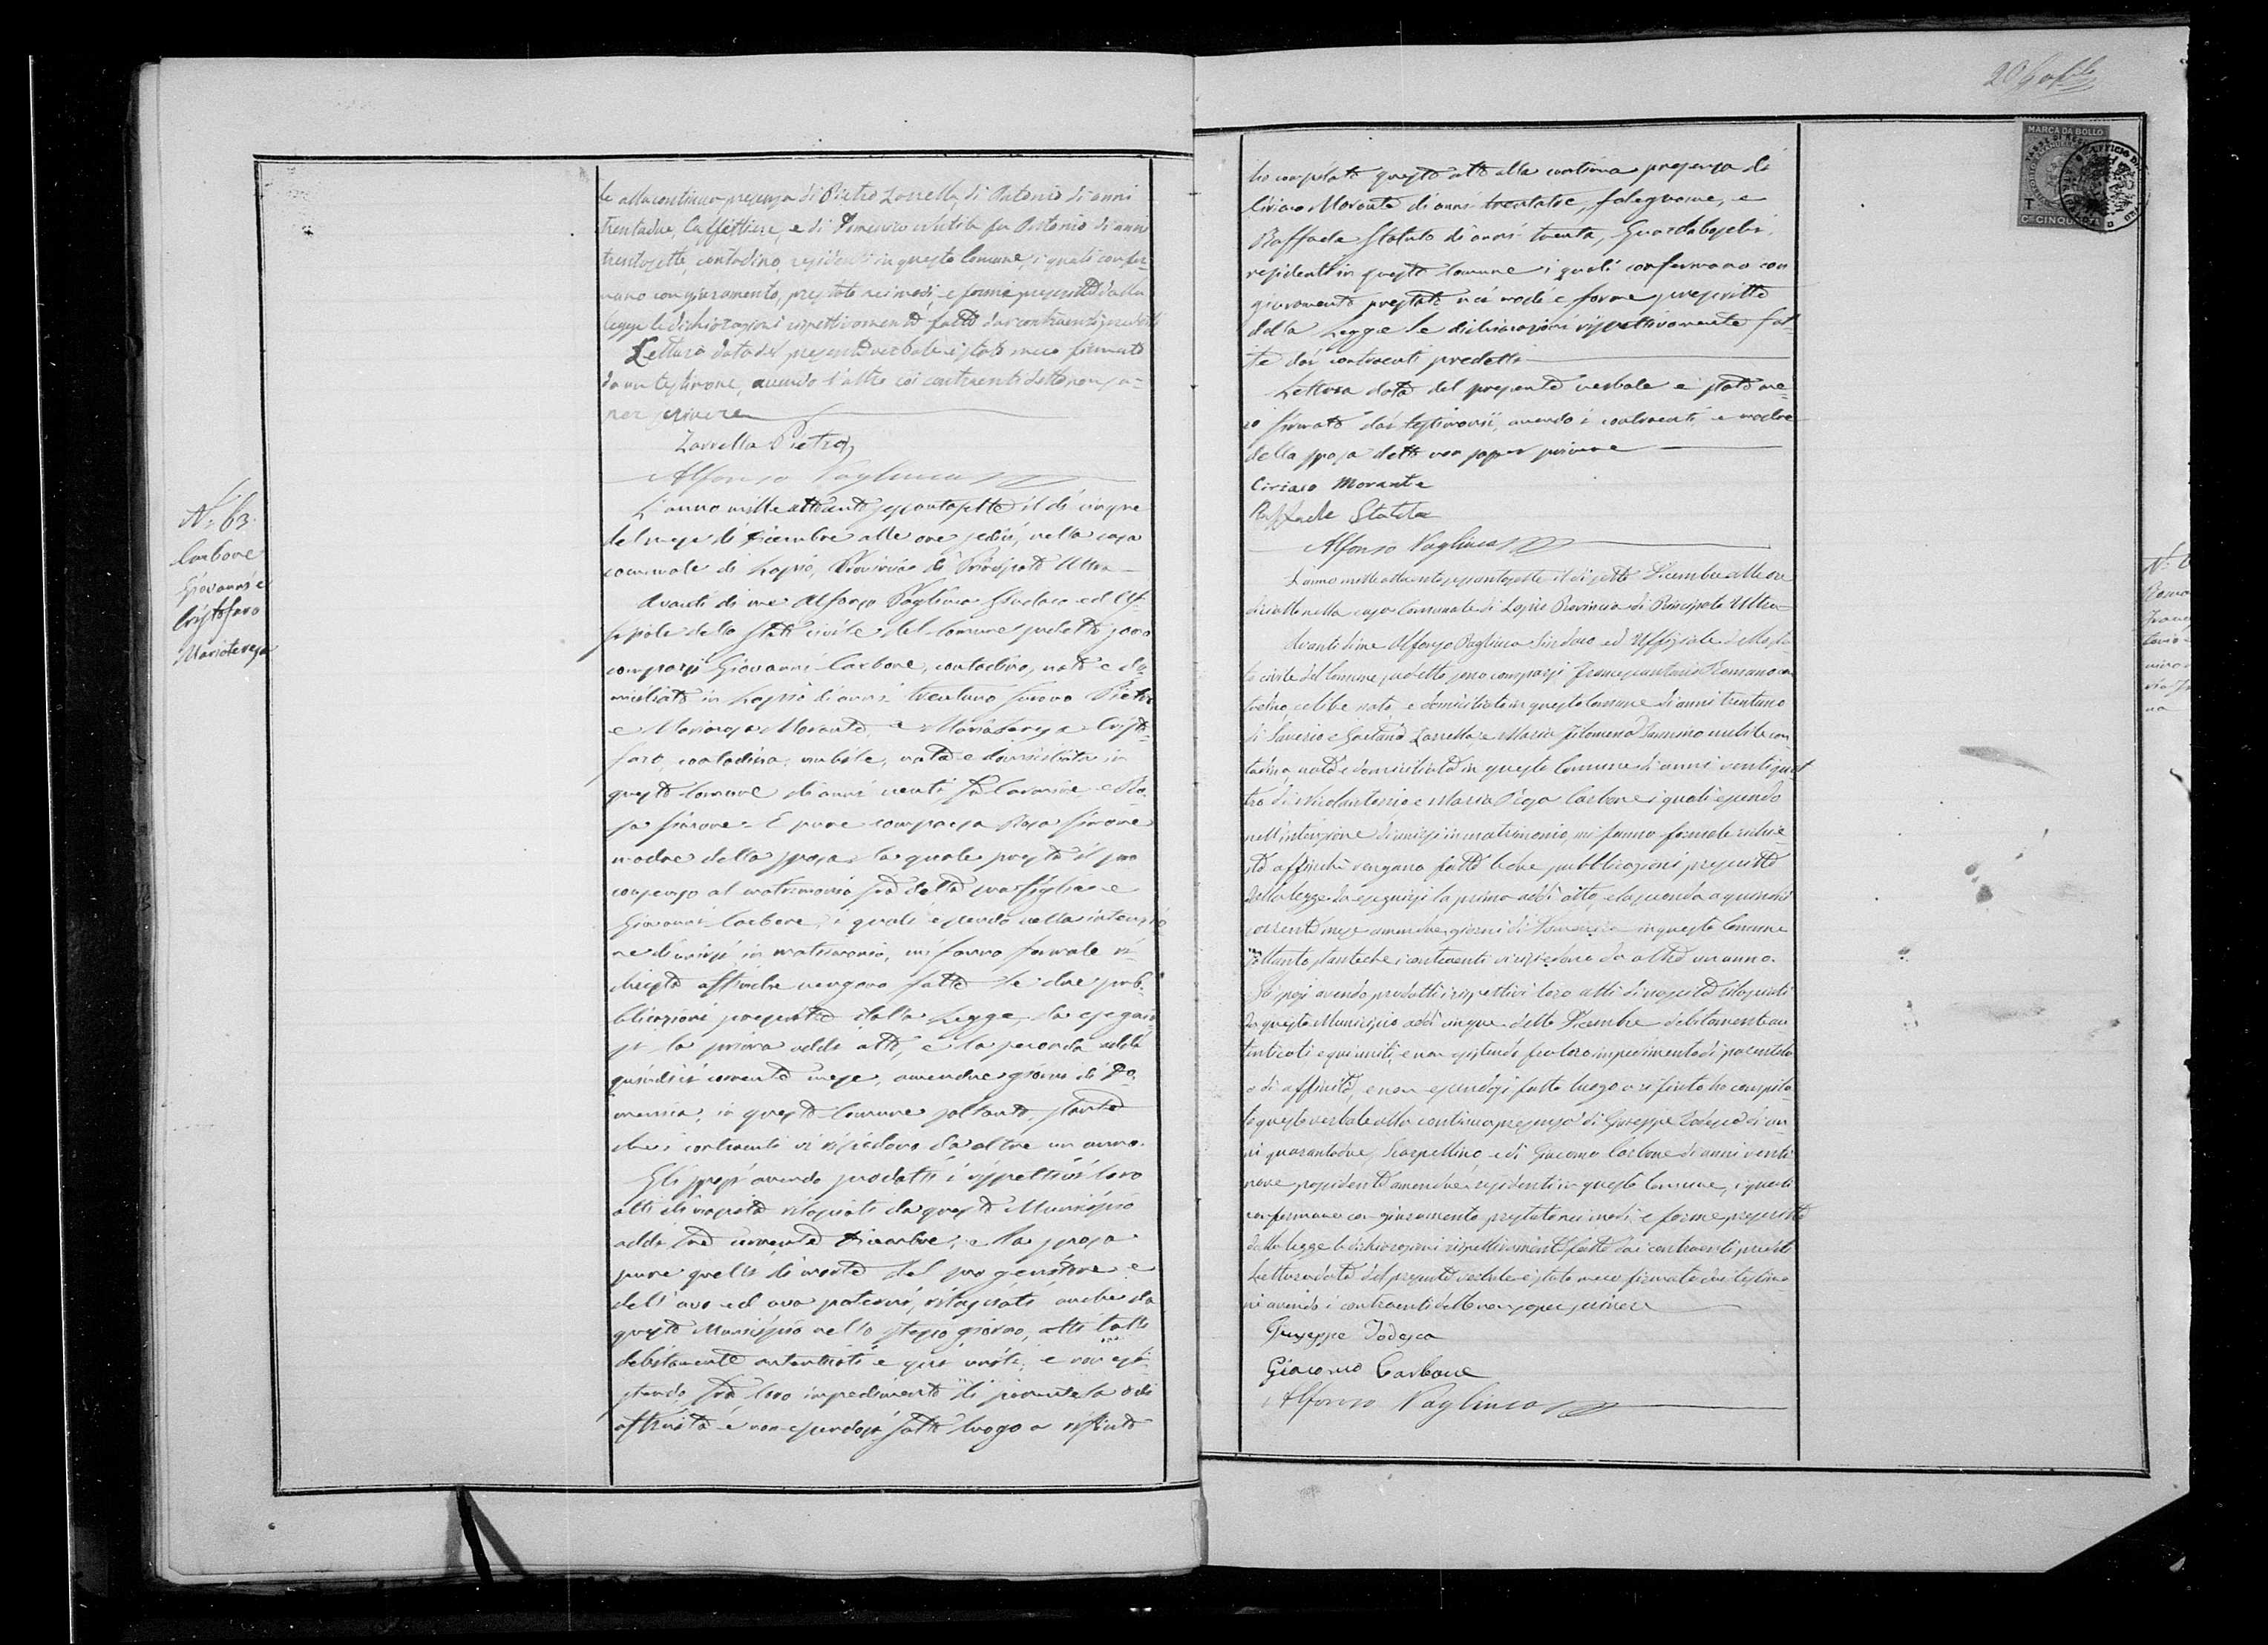 le alla continua presenza di Pietro Zarrella di Antonio di anni
trentadue, Caffettiere, e di Domenico Mitile fu Antonio di anni
trentasette, contadino, residenti in questo Comune, i quali confer-
mano con giuramento, prestato nei modi, e forme prescritte dalla
legge le dichiarazioni rispettivamente fatte dai contraenti predetti
Lettura data del presente verbale è stato meco firmato
da un testimone, avendo l'altro coi contraenti detto non sa-
per scrivere
Zarrella Pietro
Alfonso Vagliuca
N.º 63.
Carbone
Giovanni e
Cristofaro
Mariateresa
L'anno mille ottocento sessantasette il dì cinque
del mese di Dicembre alle ore sedici, nella casa
comunale di Lapio, Provincia di Principato Ultra
Avanti di me Alfonso Vagliuca Sindaco ed Uf-
fiziale dello Stato civile del Comune predetto sono
comparsi Giovanni Carbone, contadino, nato e do-
miciliato in Lapio di anni trentuno Pietro
e Mariarosa Morante, e Mariateresa Cristo-
faro, contadina, nubile, nata e domiciliata in
questo Comune di anni venti e Ro-
sa Simone. È pure comparsa Rosa Simone
madre della sposa la quale presta il suo
consenso al matrimonio fra detta sua figlia e
Giovanni Carbone, i quali essendo nella intenzio-
ne di unirsi in matrimonio, mi fanno formale ri-
chiesta affinché vengano fatte le due pub-
blicazioni prescritte dalla Legge, da eseguir-
si la prima addì otto, e la seconda addì
quindici corrente mese, amendue giorni di Do-
menica, in questo Comune soltanto, stante
che i contraenti vi risiedono da oltre un anno.
Gli sposi avendo prodotti i rispettivi loro
atti di nascita rilasciati da questo Municipio
addì tre corrente Dicembre, e la sposa
pure quelli di morte del suo genitore e
dell'avo ed ava paterni, rilasciati anche da
questo Municipio nello stesso giorno, atti tutti
debitamente autenticati e qui uniti, e non esi-
stendo fra loro impedimento di parentela o di
affinità e non essendosi fatto luogo a rifiuto
20
MARCA DA BOLLO
T
CINQUANTA
ho compilato questo atto alla continua presenza di
Ciriaco Morante di anni trentatre, falegname, e
Raffaele Statuto di anni trenta, Guardaboschi,
residenti in questo Comune i quali confermano con
giuramento prestato nei modi e forme prescritte
dalla Legge le dichiarazioni rispettivamente fat-
te dai contraenti predetti
Lettura data del presente verbale è stato me-
co firmato dai testimonii, avendo i contraenti e madre
della sposa detto non saper scrivere
Ciriaco Morante
Raffaele Statuto
Alfonso Vagliuca
L'anno mille ottocento sessantasette il dì sette Dicembre alle ore
diciotto nella casa Comunale di Lapio Provincia di Principato Ultra
Avanti di me Alfonso Vagliuca Sindaco ed Uffiziale dello sta-
to civile del Comune predetto sono comparsi Francescantonio Romano con-
tadino, celibe nato e domiciliato in questo Comune di anni trentuno
di Saverio e Gaetana Zarrella, e Maria Filomena Iannino nubile con-
tadina, nata e domiciliata in questo Comune di anni ventiquat-
tro di Nicolantonio e Maria Carbone i quali essendo
nell'intenzione di unirsi in matrimonio, mi fanno formale richie-
sta affinché vengano fatte le due pubblicazioni prescritte
dalla legge da eseguirsi la prima addì otto, e la seconda a quindici
corrente mese amendue giorni di Domenica in questo Comune
soltanto stanteché i contraenti vi risiedono da oltre un anno.
Gli sposi avendo prodotti i rispettivi loro atti di nascita rilasciati
da questo Municipio addì cinque detto Dicembre debitamente au-
tenticati e qui uniti, e non esistendo fra loro impedimento di parentela
o di affinità, e non essendosi fatto luogo a rifiuto ho compila-
to questo verbale alla continua presenza di Giuseppe Todesca di an-
ni quarantadue, Scarpellino e di Giacomo Carbone di anni venti-
nove possidente amendue residenti in questo Comune, i quali
confermano con giuramento prestato nei modi, e forme prescritte
dalla legge le dichiarazioni rispettivamente fatte dai contraenti predetti
Lettura data del presente verbale è stato meco firmato dai testimo-
ni avendo i contraenti detto non saper scrivere
Giuseppe Todesca
Giacomo Carbone
Alfonso Vagliuca